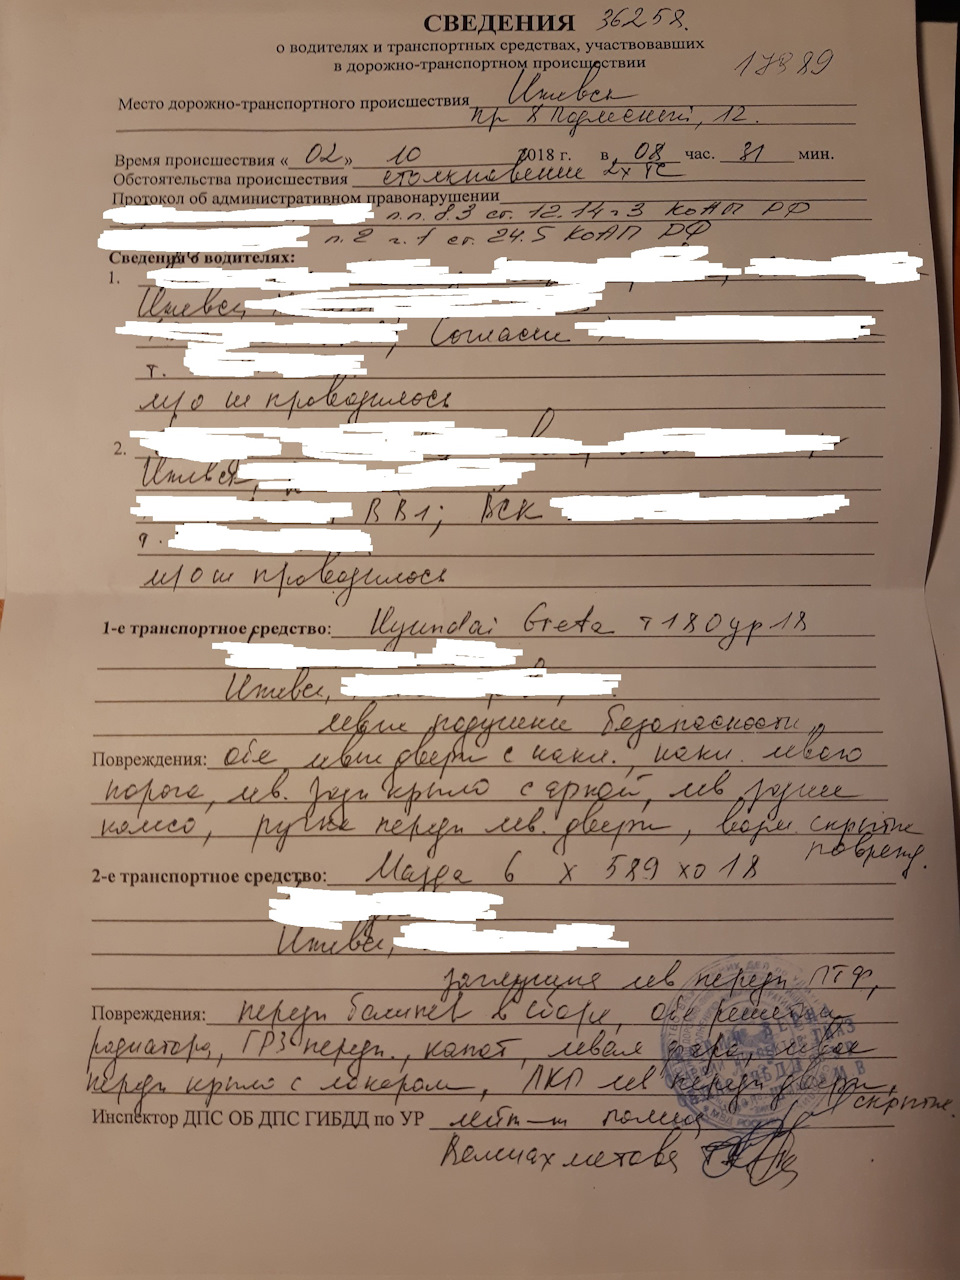 СВЕДЕНИЯ 36258.
о водителях и транспортных средствах, участвовавших
в дорожно-транспортном происшествии
17989
Место дорожно-транспортного происшествия Ижевск
пр Х Подлесной, 12.
Время происшествия « 02 » 10 2018 г. в 08 час. 31 мин.
Обстоятельства происшествия столкновение 2х ТС
Протокол об административном правонарушении
п.п. 8.3 ст. 12.14 ч 3 КоАП РФ
п. 2 ч. 1 ст. 24.5 КоАП РФ
Сведения о водителях:
1.
Ижевск,
; Согласие
т.
м/о не проводилось
2.
Ижевск,
В В1; ВСК
т.
м/о не проводилось
1-е транспортное средство: Hyundai Creta т180ур18
Ижевск,
левые подушки безопасности,
Повреждения: обе левые двери с накл., накл. левого
порога, лев. задн крыло с аркой, лев заднее
колесо, ручка передн лев. двери, возм. скрытые
поврежд.
2-е транспортное средство: Мазда 6 х 589 хо 18
Ижевск,
заглушка лев передн ПТФ,
Повреждения: передн бампер в сборе, обе решетки
радиатора, ГРЗ передн., капот, левая фара, левое
передн крыло с локером, ЛКП лев передн двери,
скрытые
Инспектор ДПС ОБ ДПС ГИБДД по УР лейт-т полиц